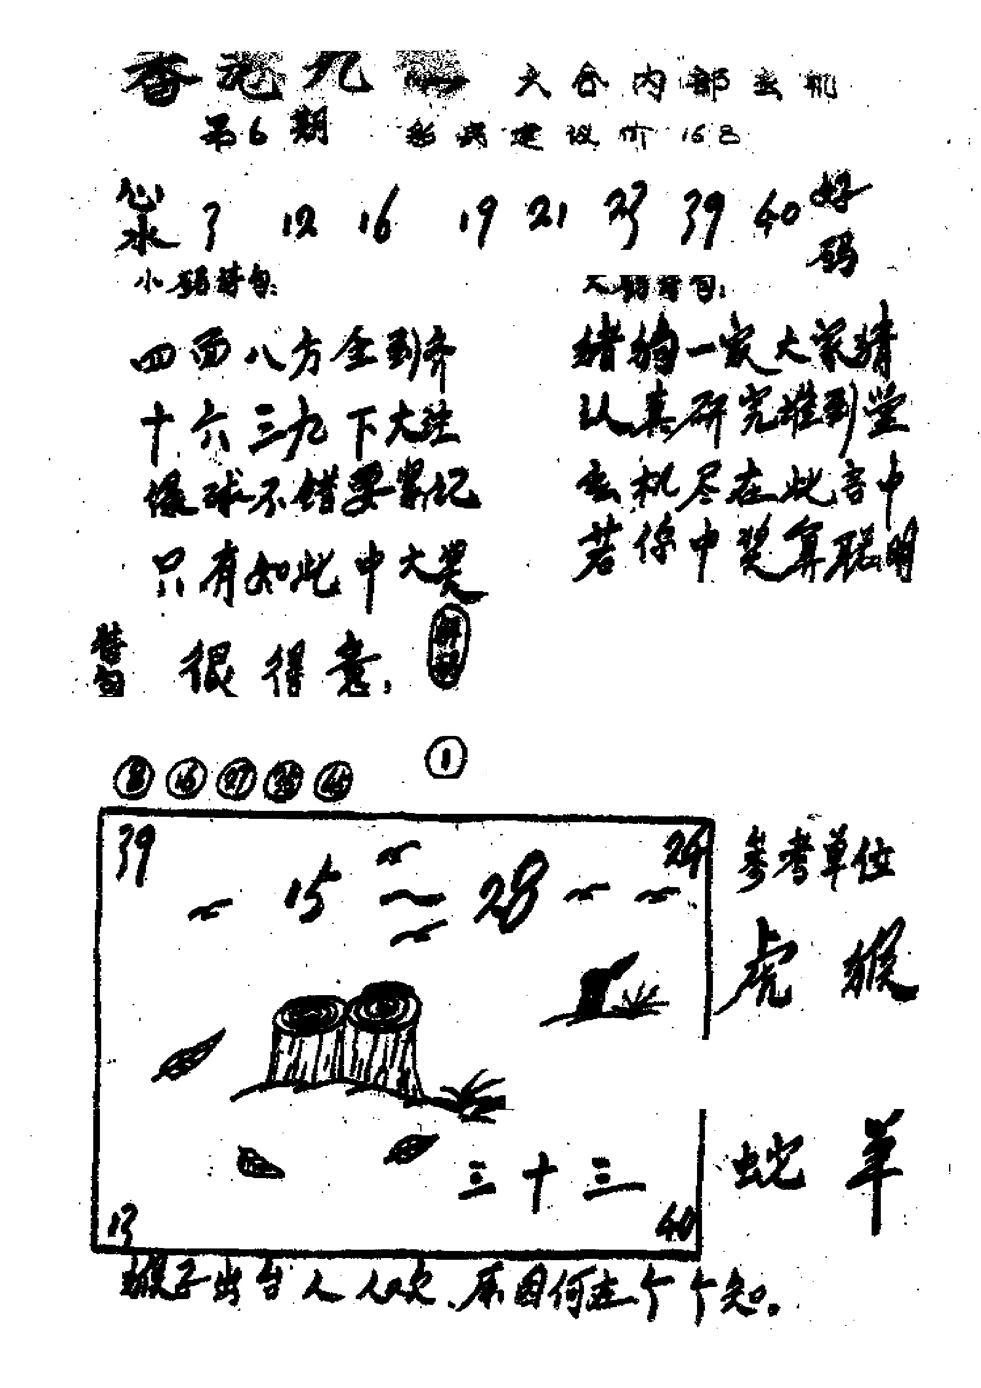 香港九 六合内部玄机
第6期 彩民建议价168
心水 3 12 16 19 21 23 39 40 好码
小码诗句: 大码诗句:
四面八方全到齐
十六三九下大注
绿球不错要紧记
只有如此中大奖
猪狗一家大家猜
认真研究难到堂
玄机尽在此言中
若你中奖算聪明
替句 很得意. 解码
8 16 27 45 1
39 15～28 24
参考单位
虎 猴
蛇 羊
三十三
13 40
猴子出台人人欢、原因何在个个知。